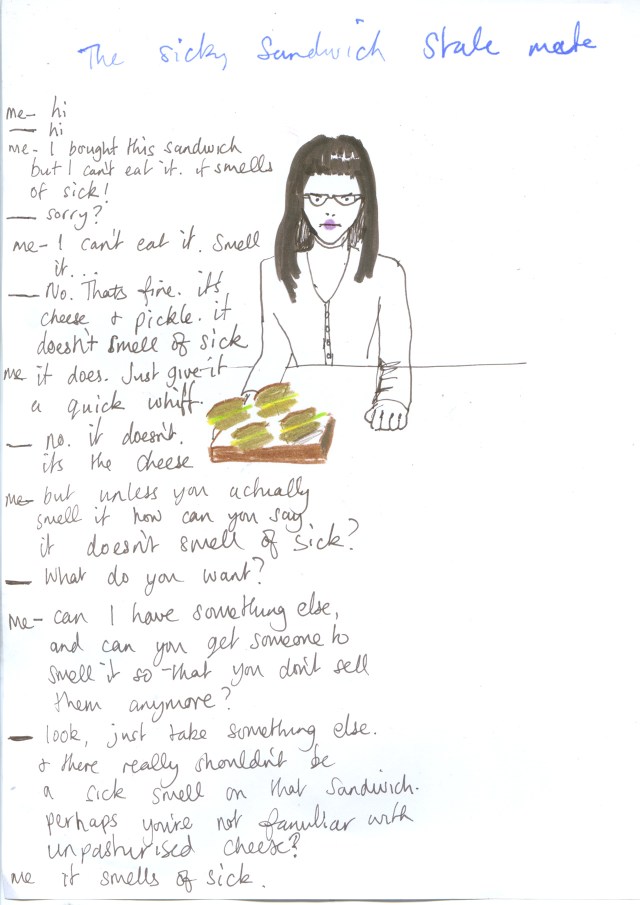 The sicky Sandwich Stale mate
me- hi
— hi
me- I bought this sandwich
but I can't eat it. it smells
of sick!
— sorry?
me- I can't eat it. Smell
it...
— No. Thats fine. its
cheese & pickle. it
doesn't smell of sick
me it does. Just give it
a quick whiff.
— no. it doesn't.
its the cheese
me- but unless you actually
smell it how can you say
it doesn't smell of sick?
— What do you want?
me- can I have something else,
and can you get someone to
smell it so that you don't sell
them anymore?
— look, just take something else.
& there really shouldn't be
a sick smell on that sandwich.
perhaps you're not familiar with
unpasturised cheese?
me it smells of sick.